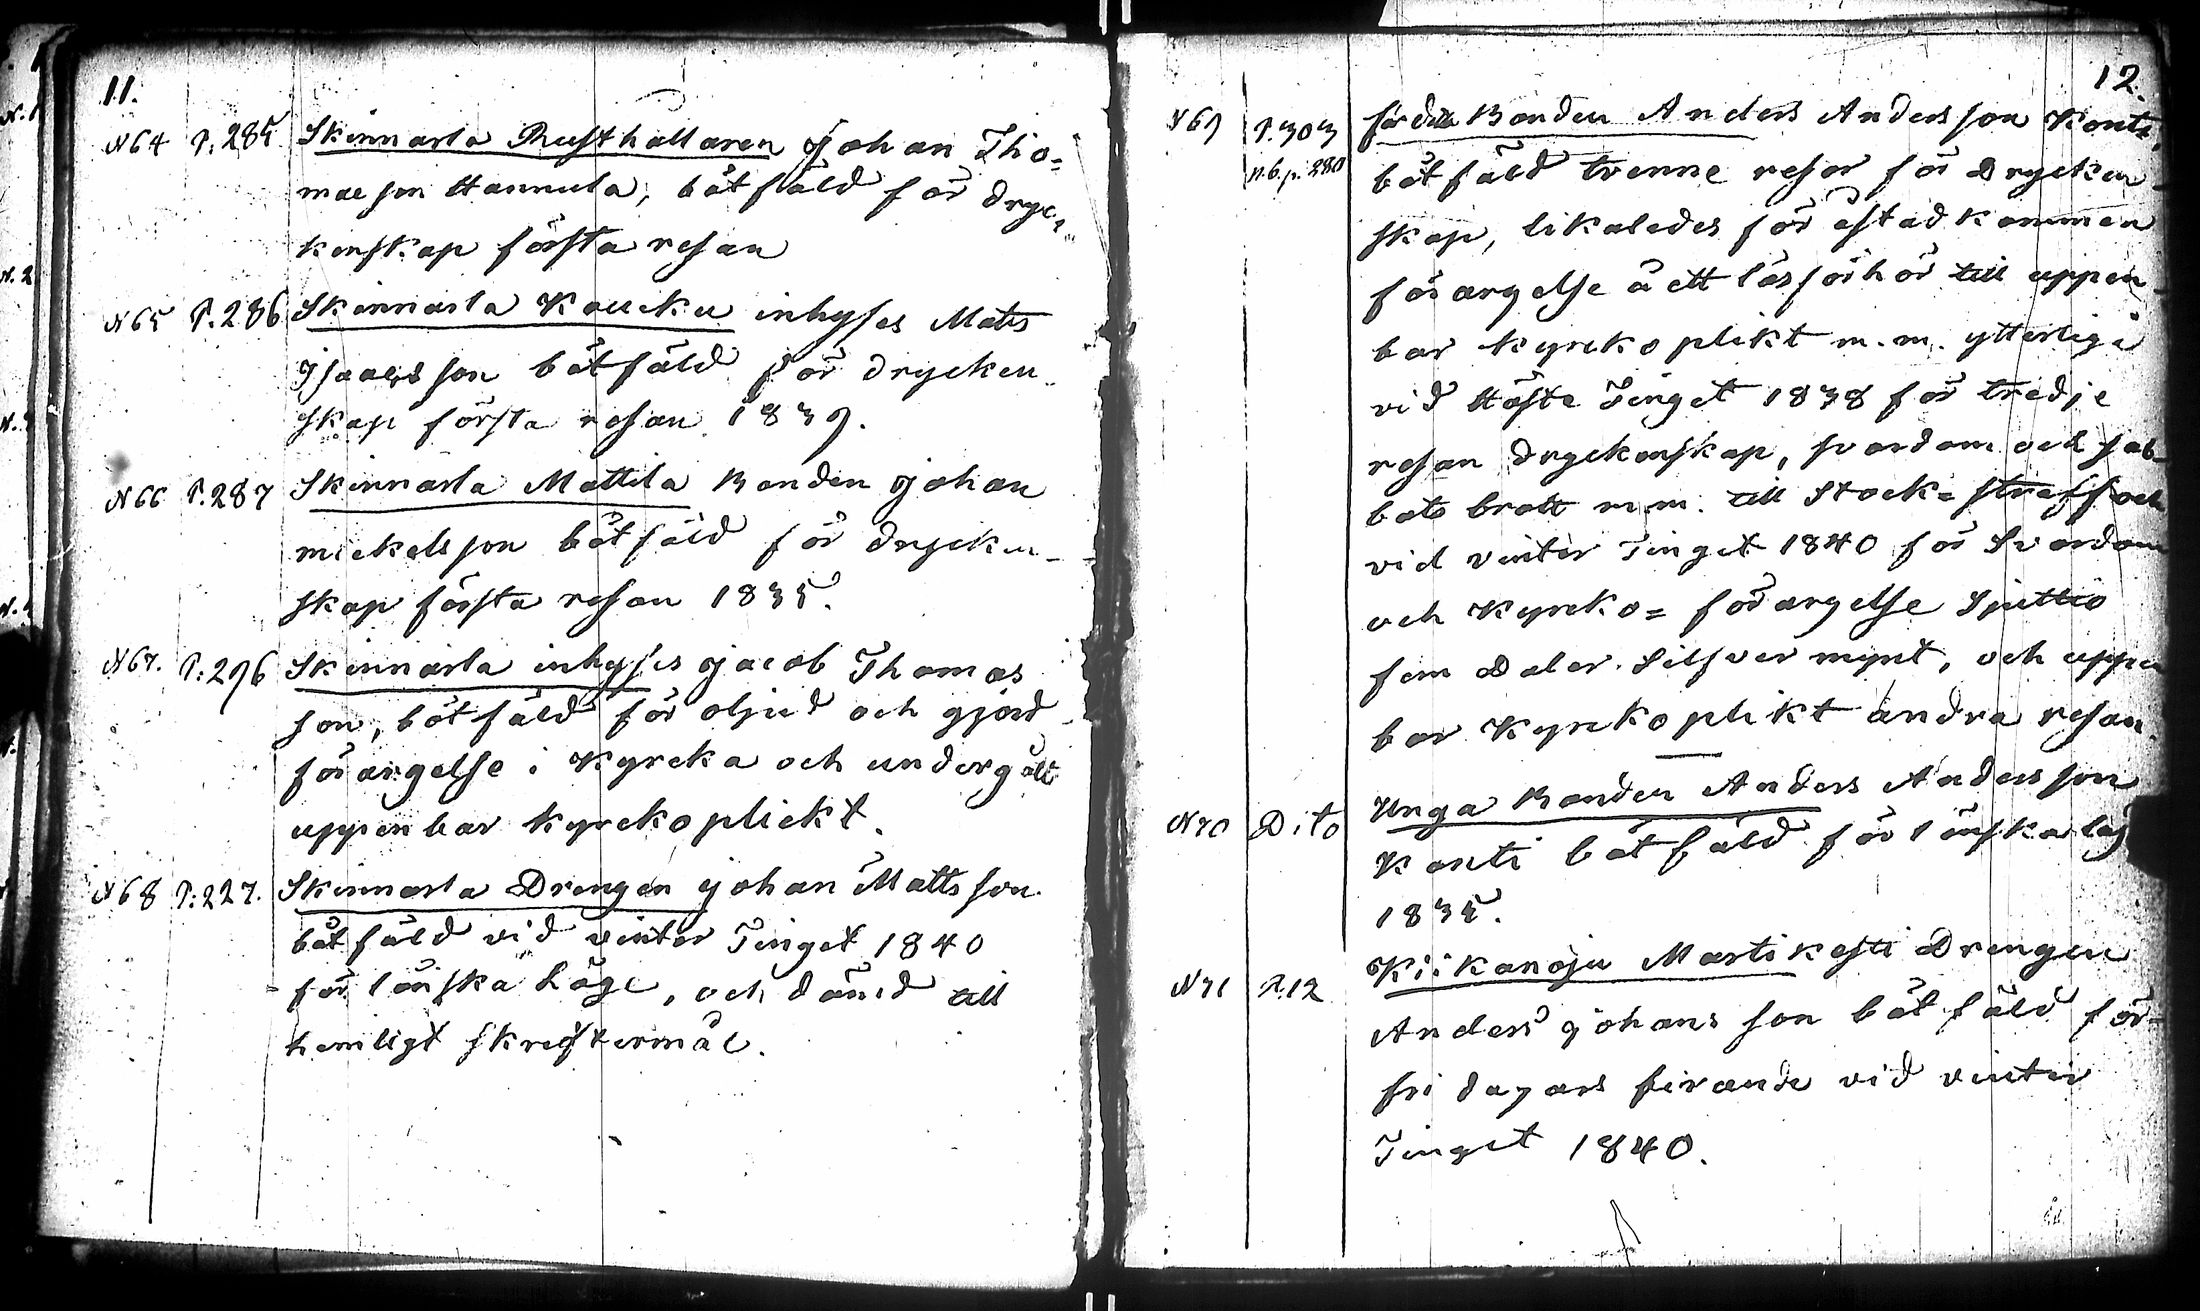 11.
N 64 P. 285 Skinnarla Rusthållaren Johan Tho=
maeson Hannula, botfäld för dryc-
kenskap första resan
N 65 P. 286 Skinnarla Koucku inhyses Mats
Isaacsson botfäld för drycken-
skap första resan 1839.
N 66 P. 287 Skinnarla Mattila Bonden Johan
mickelsson botfäld för drycken-
skap första resan 1835.
N 67. P. 296 Skinnarla inhyses Jacob Thomas
son, botfäld för oljud och gjord
förargelse i Kyrcka och undergått
uppenbar kyrckoplickt.
N 68 P: 227. Skinnarla Drengen Johan Mattsson
botfäld vid vinter Tinget 1840
för lönska Läge, och dömd till
hemligt skriftermål.
12.
N 69 P. 303 förd Bonden Anders Andersson Konti,
n.b. p. 280 botfäld trenne resor för Drycken-
skap, likaledes för åstadkommen
förargelse å ett läsförhör till uppen-
bar kyrckoplikt m.m. ytterlige
vid Höste Tinget 1838 för tredje
resan dryckenskap, svordom och sab-
bats brott m.m. till Stock= straff och
vid vinter Tinget 1840 för Svordom
och Kyrcko= förargelse Sjuttio
fem Daler Silfver mynt, och uppen
bar Kyrckoplikt andra resan.
N 70 Dito Unga Bonden Anders Andersson
Konti botfäld för lönskaläg
1835.
N 71 P. 12 Kiikanoju Martikesti Drengen
Anders Johans son botfäld för
fri dagars firande vid vinter
Tinget 1840.